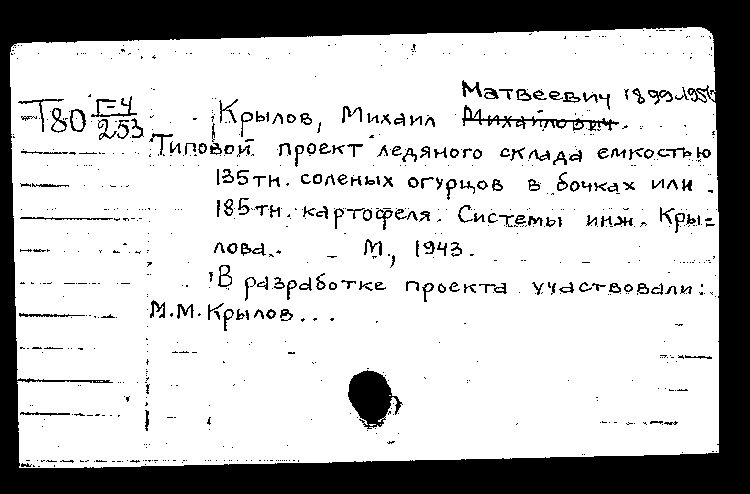 Матвеевич 1899-195
Т80 Г-4/253
Крылов, Михаил Михайлович.
Типовой проект ледяного склада емкостью
135тн. соленых огурцов в бочках или
185тн. картофеля. Системы инж. Кры=
лова. М., 1943.
В разработке проекта участвовали:
М.М.Крылов...